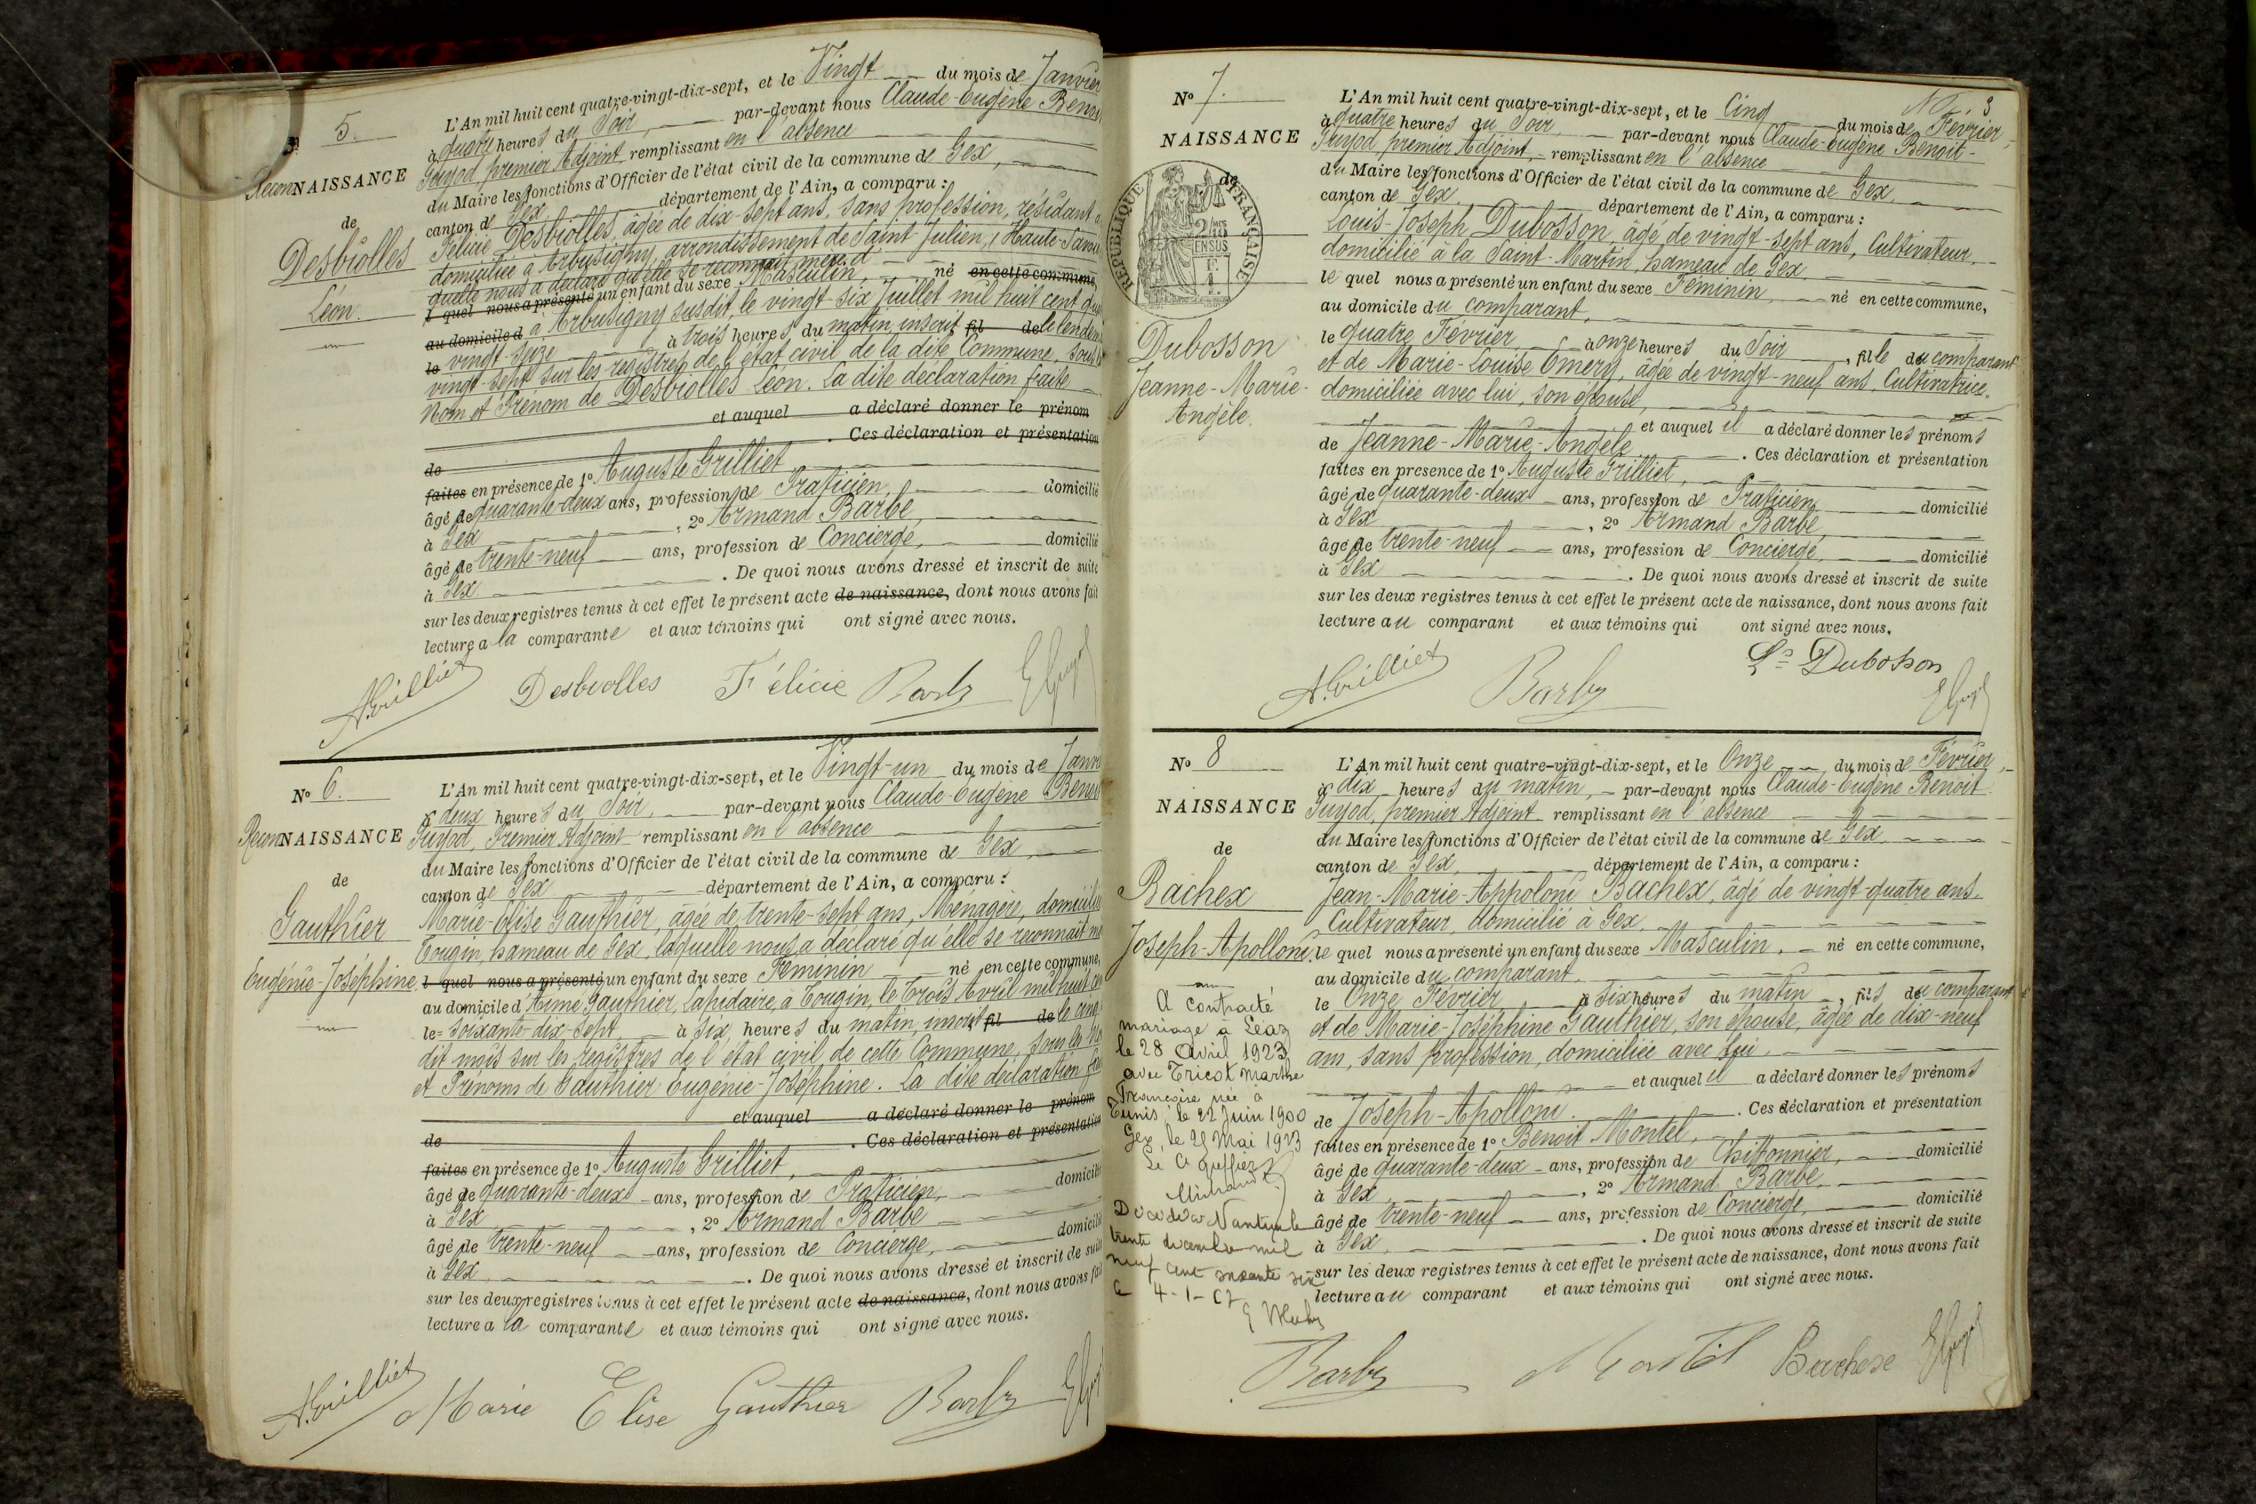 5.
ReconNAISSANCE
de
Desbiolles
Léon.
L'An mil huit cent quatre-vingt-dix-sept, et le Vingt du mois de Janvier
à quatre heures du Soir, par-devant nous Claude-Eugène Benoit
Guyod premier Adjoint remplissant en l'absence
du Maire les fonctions d'Officier de l'état civil de la commune de Gex,
canton de Gex département de l'Ain, a comparu :
Félicie Desbiolles, âgée de dix-sept ans, sans profession, résidant
domiciliée à Arbusigny, arrondissement de Saint Julien, Haute-Savoie
quelle nous a déclaré qu'elle se reconnait mère d
l quel nous a présenté un enfant du sexe Masculin, né en cette commune,
au domicile d à Arbusigny susdit, le vingt-six Juillet mil huit cent
le vingt-seize à trois heures du matin, inscrit fil de le lendemain
vingt-sept sur les registres de l'état civil de la dite Commune, sous
Nom et Prénom de Desbiolles Léon. La dite déclaration faite
et auquel a déclaré donner le prénom
de . Ces déclaration et présentation
faites en présence de 1º Auguste Grilliet
âgé de quarante-deux ans, profession de Praticien, domicilié
à Gex, 2º Armand Barbe
âgé de trente-neuf ans, profession de Concierge, domicilié
à Gex . De quoi nous avons dressé et inscrit de suite
sur les deux registres tenus à cet effet le présent acte de naissance, dont nous avons fait
lecture a la comparante et aux témoins qui ont signé avec nous.
A. Grilliet Desbiolles Félicie Barbe
Nº 6.
ReconNAISSANCE
de
Gauthier
Eugénie-Joséphine
L'An mil huit cent quatre-vingt-dix-sept, et le Vingt-un du mois de
à deux heures du Soir, par-devant nous Claude-Eugène Benoit
Guyod, Premier Adjoint remplissant en l'absence
du Maire les fonctions d'Officier de l'état civil de la commune de Gex,
canton de Gex département de l'Ain, a comparu :
Marie-Elise Gauthier, âgée de trente-sept ans, Ménagère, domiciliée
Tougin, hameau de Gex, laquelle nous a déclaré qu'elle se reconnait
l quel nous a présenté un enfant du sexe Féminin né en cette commune,
au domicile d'Aimé Gauthier, lapidaire, à Tougin, le Trois Avril mil huit cent
le soixante-dix-sept à six heures du matin, inscrit fil de le cinq
dit mois sur les registres de l'état civil de cette Commune, sous les
et Prénoms de Gauthier Eugénie-Joséphine. La dite déclaration
et auquel a déclaré donner le prénom
de . Ces déclaration et présentation
faites en présence de 1º Auguste Grilliet,
âgé de quarante-deux ans, profession de Praticien, domicilié
à Gex, 2º Armand Barbe
âgé de trente-neuf ans, profession de Concierge, domicilié
à Gex . De quoi nous avons dressé et inscrit de suite
sur les deux registres tenus à cet effet le présent acte de naissance, dont nous avons fait
lecture a la comparante et aux témoins qui ont signé avec nous.
A. Grilliet Marie Elise Gauthier Barbe
3
Nº 7.
NAISSANCE
de
RÉPUBLIQUE FRANÇAISE
Dubosson
Jeanne-Marie-
Angèle.
L'An mil huit cent quatre-vingt-dix-sept, et le Cinq du mois de Février,
à quatre heures du Soir, par-devant nous Claude-Eugène Benoit-
Guyod premier Adjoint, remplissant en l'absence
du Maire les fonctions d'Officier de l'état civil de la commune de Gex,
canton de Gex, département de l'Ain, a comparu :
Louis-Joseph Dubosson, âgé de vingt-sept ans, Cultivateur,
domicilié à la Saint-Martin, hameau de Gex
le quel nous a présenté un enfant du sexe Féminin, né en cette commune,
au domicile du comparant,
le quatre Février à onze heures du Soir, fille du comparant
et de Marie-Louise Emery, âgée de vingt-neuf ans, Cultivatrice,
domiciliée avec lui, son épouse,
et auquel il a déclaré donner les prénoms
de Jeanne-Marie-Angèle . Ces déclaration et présentation
faites en présence de 1º Auguste Grilliet,
âgé de quarante-deux ans, profession de Praticien, domicilié
à Gex, 2º Armand Barbe,
âgé de trente-neuf ans, profession de Concierge, domicilié
à Gex . De quoi nous avons dressé et inscrit de suite
sur les deux registres tenus à cet effet le présent acte de naissance, dont nous avons fait
lecture au comparant et aux témoins qui ont signé avec nous.
A. Grilliet Barbe Ls Dubosson
Nº 8
NAISSANCE
de
Bachex
Joseph-Apolloni.
A contracté
mariage à Léaz
le 28 avril 1923
avec Tricot Marthe
Françoise née à
Tunis le 22 Juin 1900
Gex, le 28 Mai 1923
Le Greffier
trente décembre mil
neuf cent soixante six
L'An mil huit cent quatre-vingt-dix-sept, et le Onze du mois de Février,
à dix heures du matin, par-devant nous Claude-Eugène Benoit
Guyod, premier Adjoint remplissant en l'absence
du Maire les fonctions d'Officier de l'état civil de la commune de Gex
canton de Gex, département de l'Ain, a comparu :
Jean-Marie-Appoloni Bachex, âgé de vingt-quatre ans,
Cultivateur, domicilié à Gex,
le quel nous a présenté un enfant du sexe Masculin, né en cette commune,
au domicile du comparant
le Onze Février à six heures du matin, fils du comparant
et de Marie-Joséphine Gauthier, son épouse, âgée de dix-neuf
ans, sans profession, domiciliée avec lui,
et auquel il a déclaré donner les prénoms
de Joseph-Apolloni. . Ces déclaration et présentation
faites en présence de 1º Benoit Montel,
âgé de quarante-deux ans, profession de Chiffonnier, domicilié
à Gex, 2º Armand Barbe,
âgé de trente-neuf ans, profession de Concierge, domicilié
à Gex, . De quoi nous avons dressé et inscrit de suite
sur les deux registres tenus à cet effet le présent acte de naissance, dont nous avons fait
lecture au comparant et aux témoins qui ont signé avec nous.
Barbe Montel Bachex